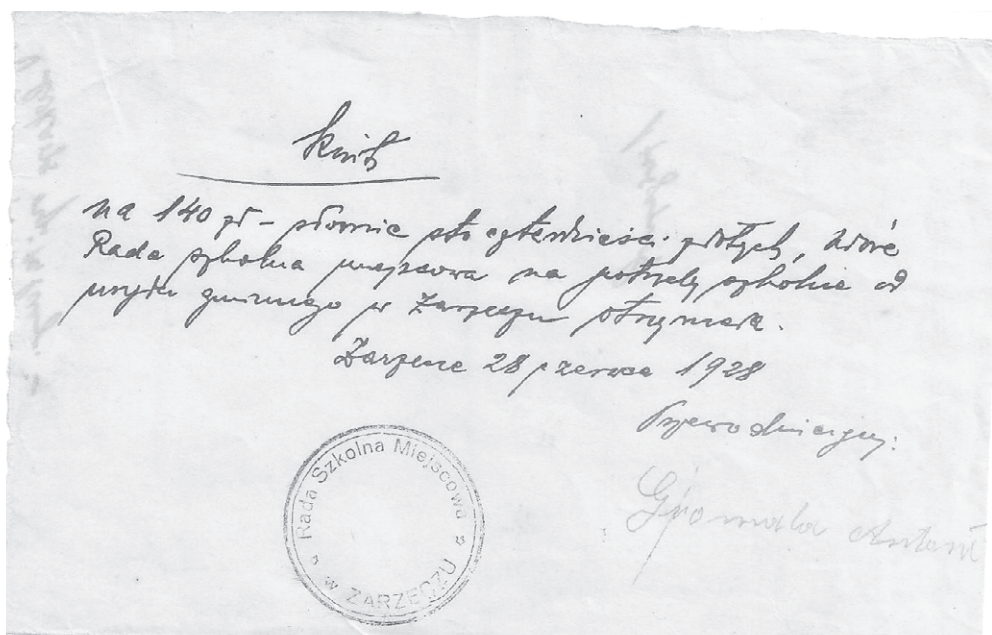 Kwit
na 140 zł – słownie sto czterdzieści złotych, które
Rada szkolna miejscowa na potrzeby szkolne od
urzędu gminnego w Zarzeczu otrzymała.
Zarzecze 28 czerwca 1928
Przewodniczący:
Gromala Antoni
Rada Szkolna Miejscowa
w ZARZECZU